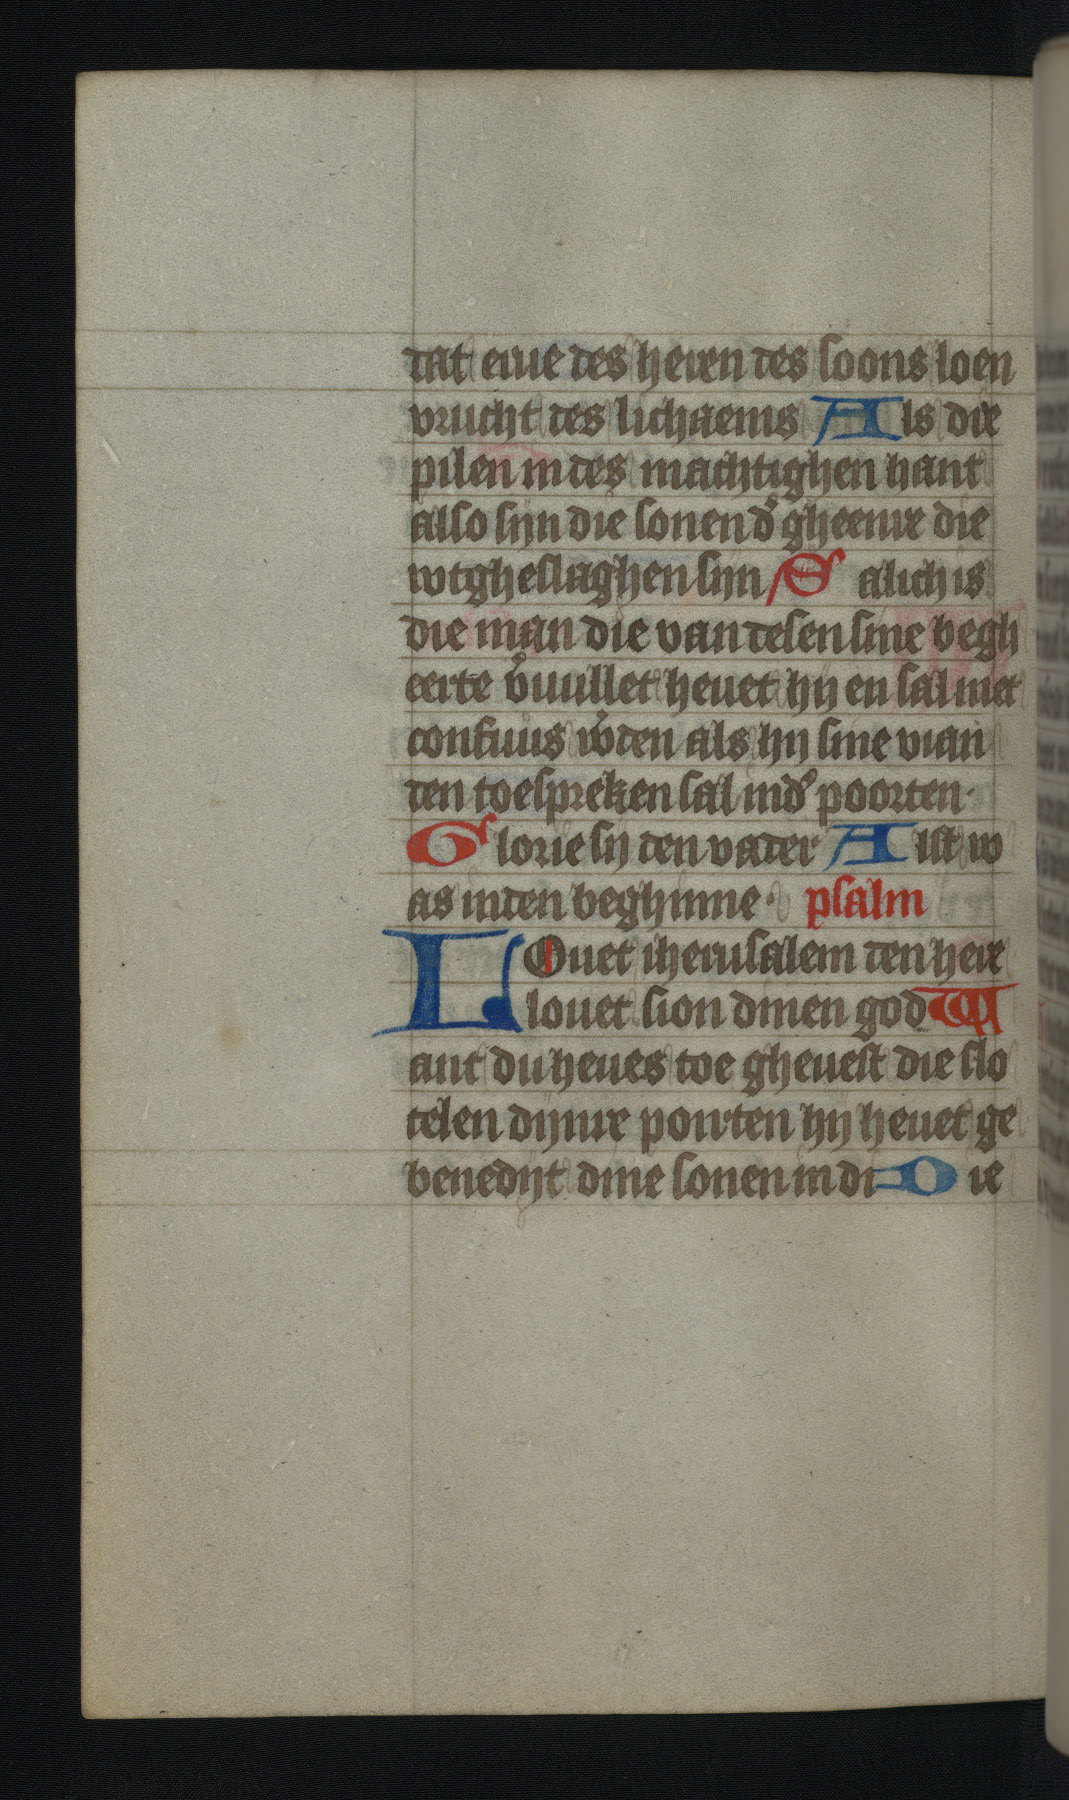 dat erue des heren des soons loen
vrucht des lichaems Als die
pilen in des machtighen hant
also sijn die sonen d᾽ gheenre die
wtgheslaghen sijn Salich is
die man die van desen sine begh
eerte v᾽uullet heuet hij en sal niet
confuus w᾽den als hij sine vian
den toespreken sal in d᾽ poorten.
Glorie sij den vader Alst w
as inden beghinne. psalm
LOuet iherusalem den here
louet sion dinen god W
ant du heues toe gheuest die slo
telen dijnre poorten hij heuet ge
benedijt dine sonen in di Die